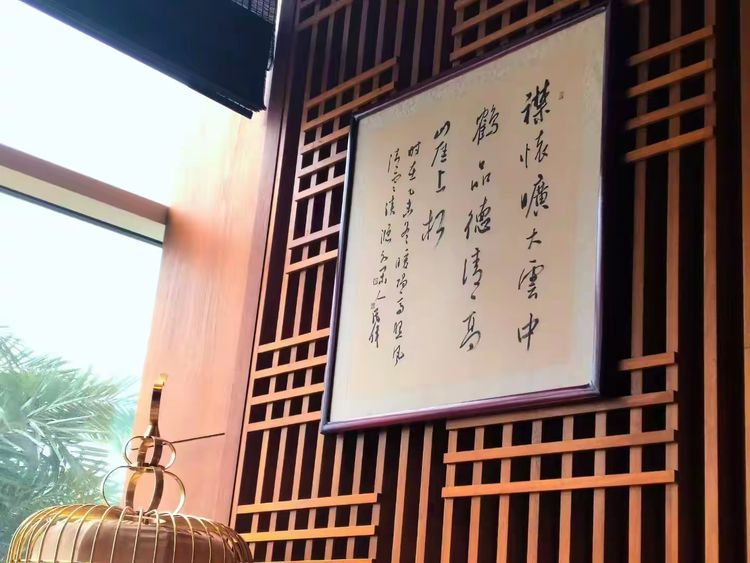 襟怀旷大雲中
鹤品德清高
山崖上松
时在乙未冬暖阳高照风
清